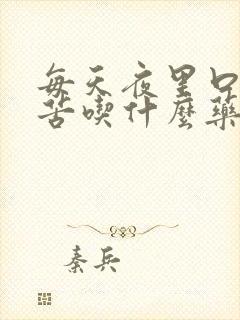 每天夜里口
苦喫什麼藥
秦兵